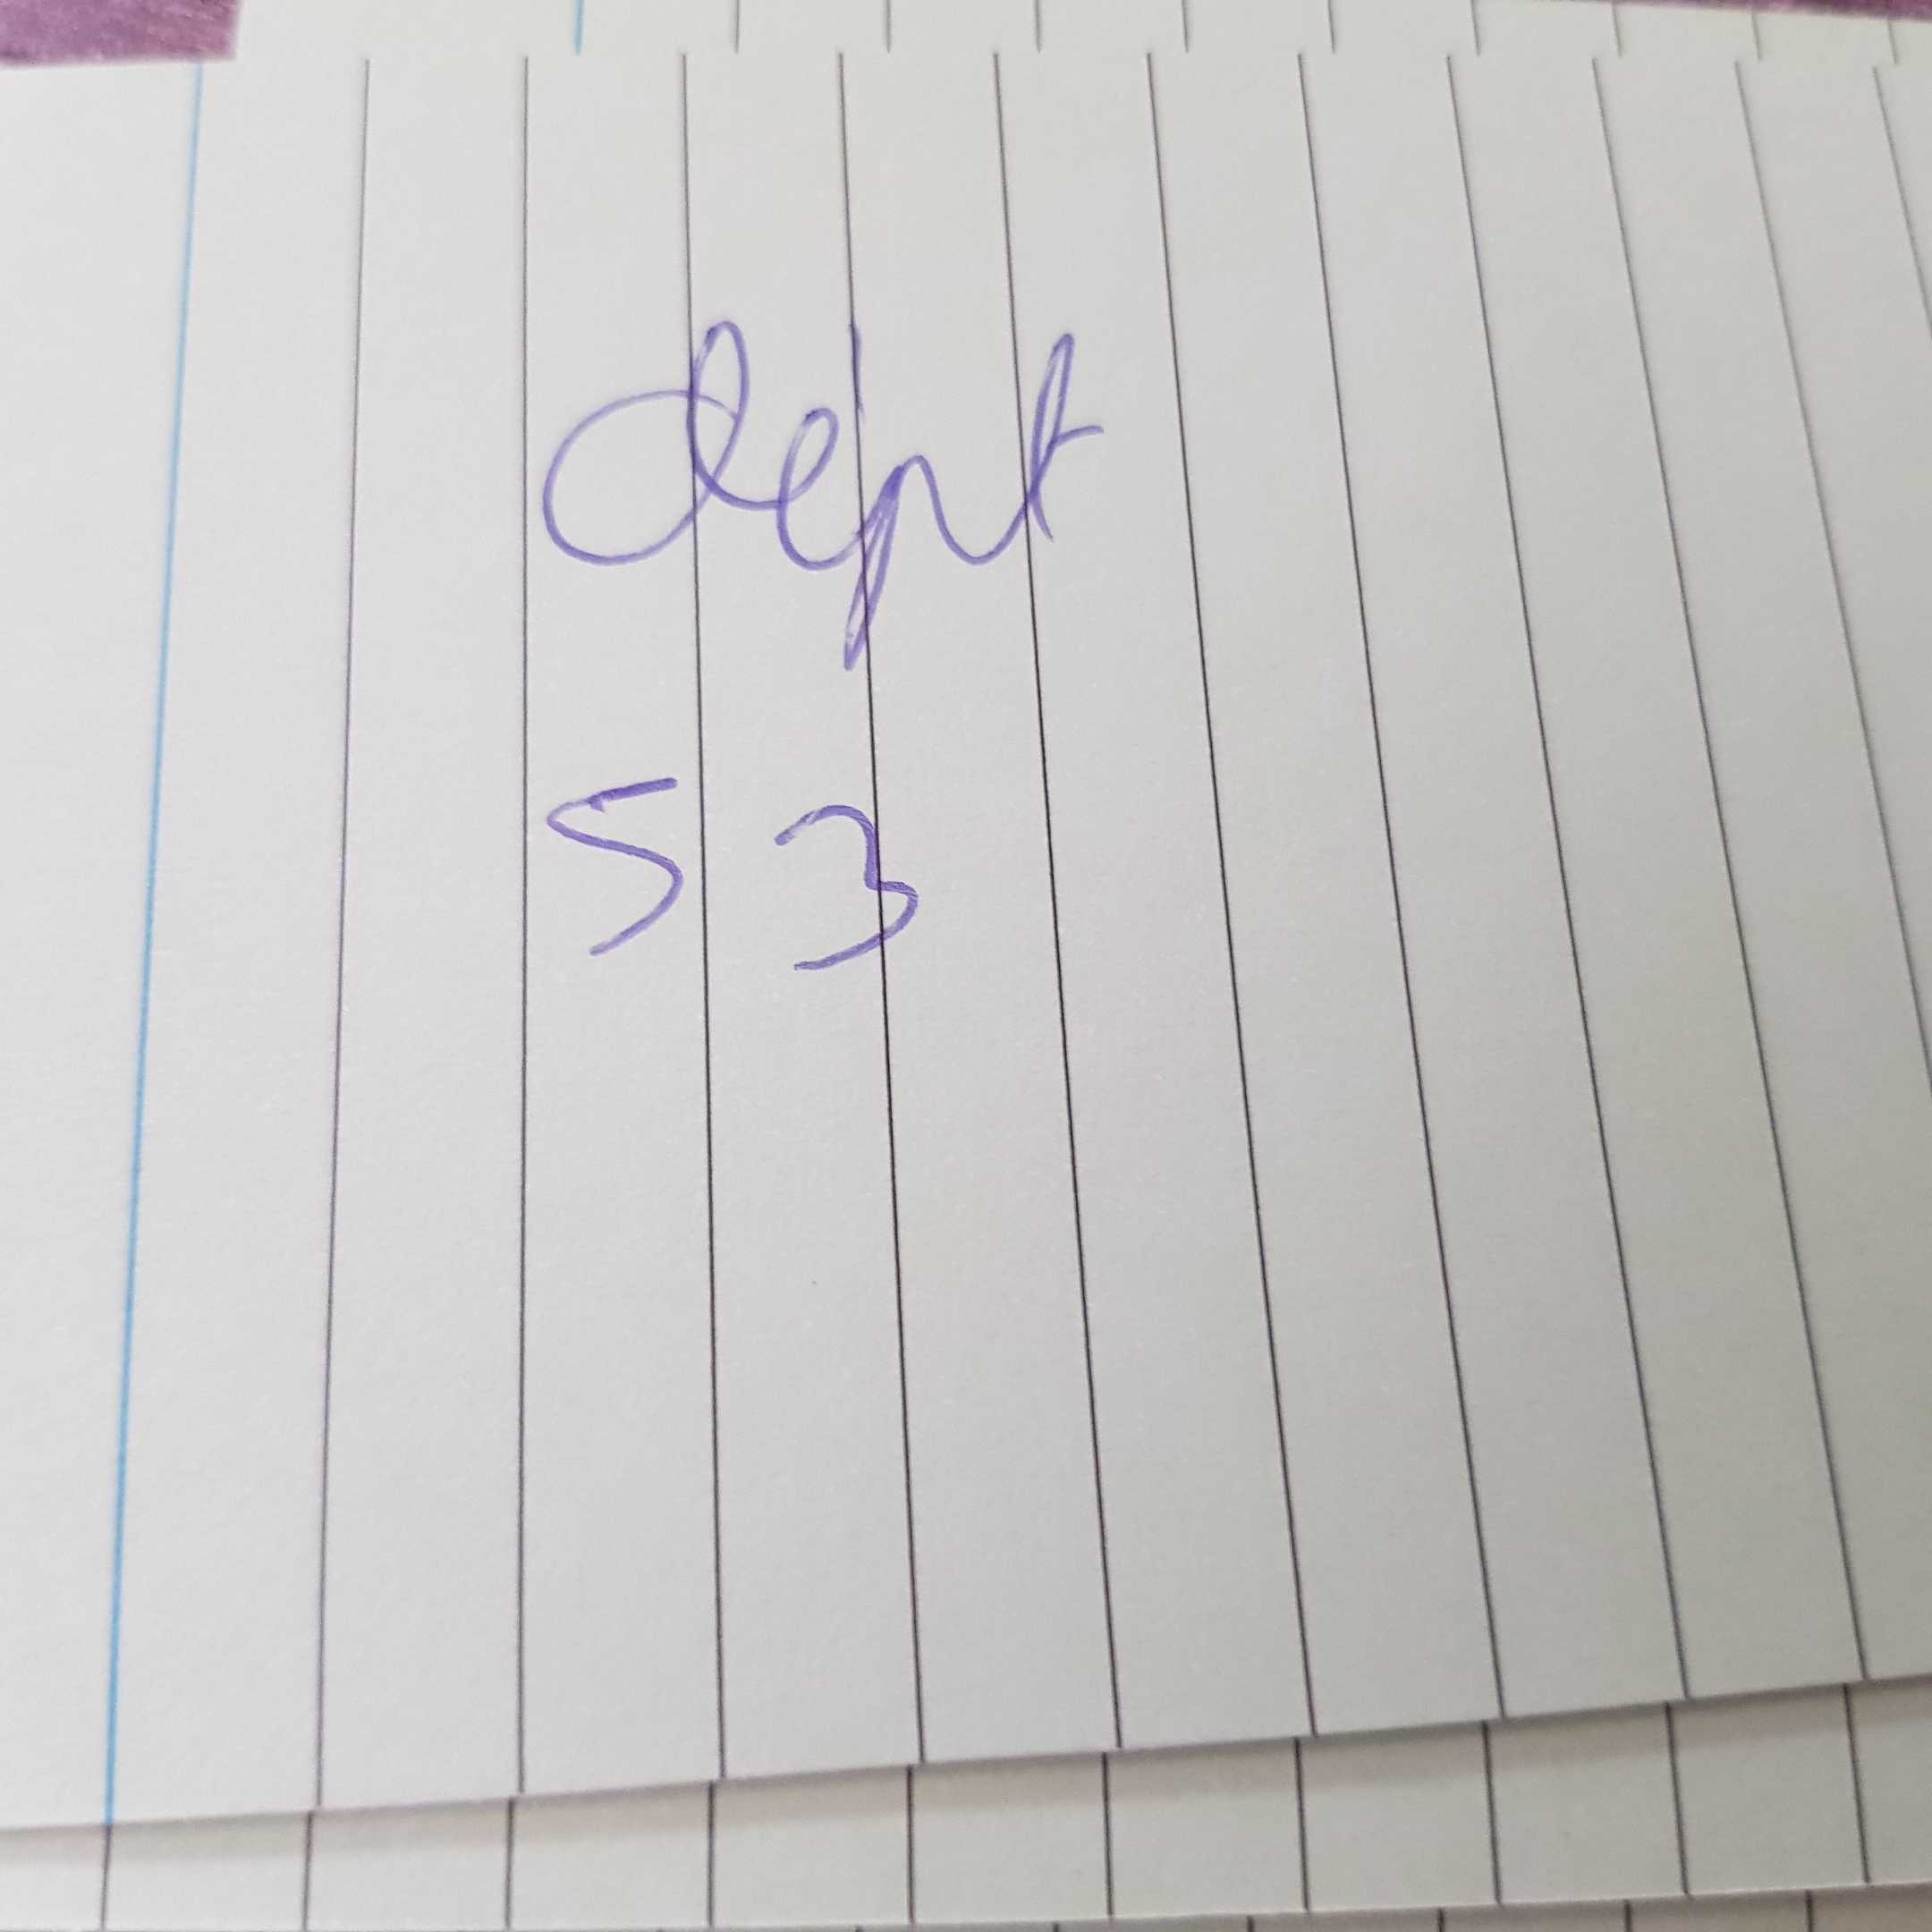 dept
53